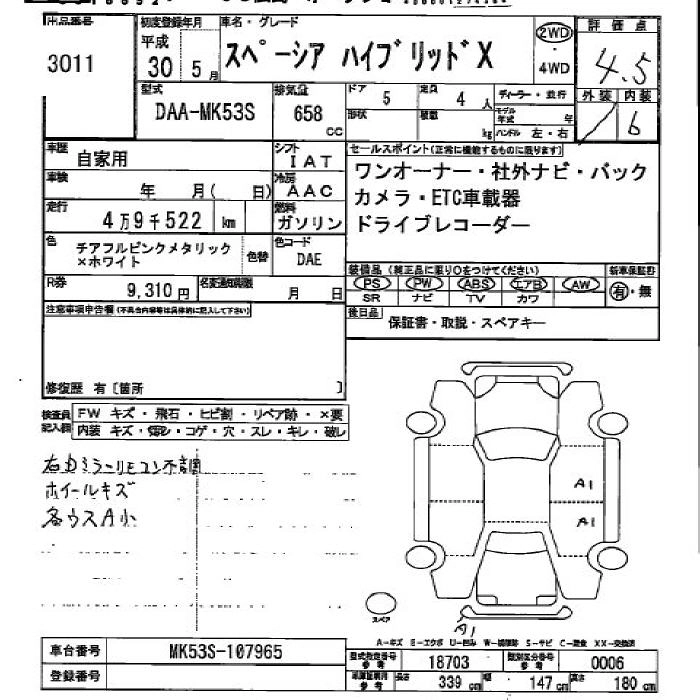 出品番号
3011
初度登録年月
平成
30 5 月
車名・グレード
スペーシア ハイブリッドX
2WD
・
4WD
評価点
4.5
外装 内装
6
型式
DAA-MK53S
排気量
658
cc
ドア
5
定員
4 人
ディーラー・並行
形状
積載
kg
モデル年式
年
ハンドル 左・右
車歴
自家用
シフト
IAT
車検
年 月( 日)
冷房
AAC
走行
4万9千522 km
燃料
ガソリン
色
チアフルピンクメタリック
×ホワイト
色替
色コード
DAE
R券
9,310 円
名変通知期限
月 日
セールスポイント(正常に機能するものに限ります)
ワンオーナー・社外ナビ・バック
カメラ・ETC車載器
ドライブレコーダー
装備品 (純正品に限り○をつけてください)
PS PW ABS エアB AW
SR ナビ TV カワ
新車保証書
有・無
後日品
保証書・取説・スペアキー
注意事項申告欄(不具合内容等は具体的に記入して下さい)
修復歴 有〔箇所 〕
検査員
記入欄
FW キズ・飛石・ヒビ割・リペア跡・×要
内装 キズ・汚レ・コゲ・穴・スレ・キレ・破レ
右ドミラーリモコン不調
ホイールキズ
各ウスA小
A1
A1
スペア
A1
A-キズ E-エクボ U-凹み W-補修跡 S-サビ C-腐食 XX-交換済
車台番号
MK53S-107965
登録番号
型式指定番号
参考
18703
類別区分番号
参考
0006
車庫証明用
参考
長さ
339 cm
幅
147 cm
高さ
180 cm